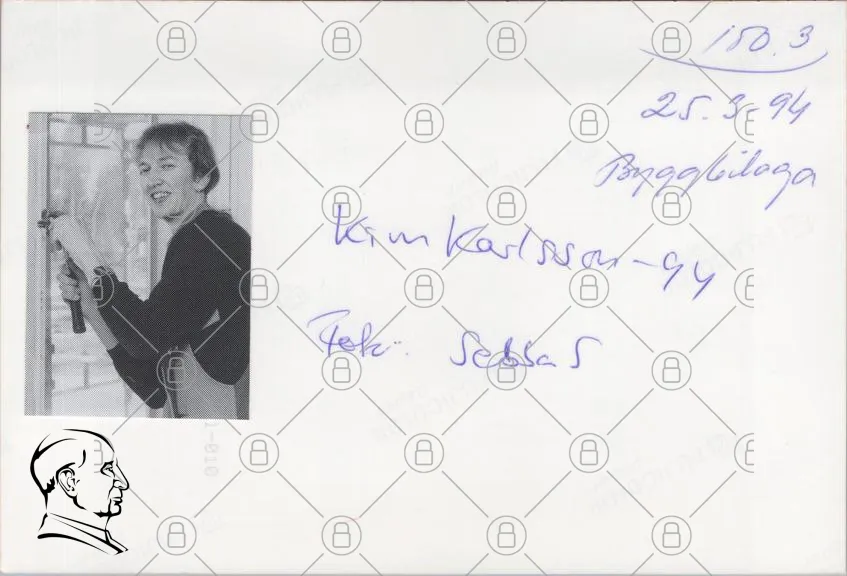 150.3
25.3-94
Byggbilaga
Kim Karlsson -94
Foto: Sebba S
1-010